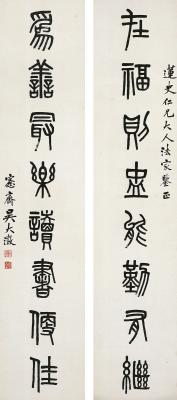 蓮史仁兄大人法家鑒正
在福則盅能勤有繼
為善最樂讀書便佳
愙齋吳大澂